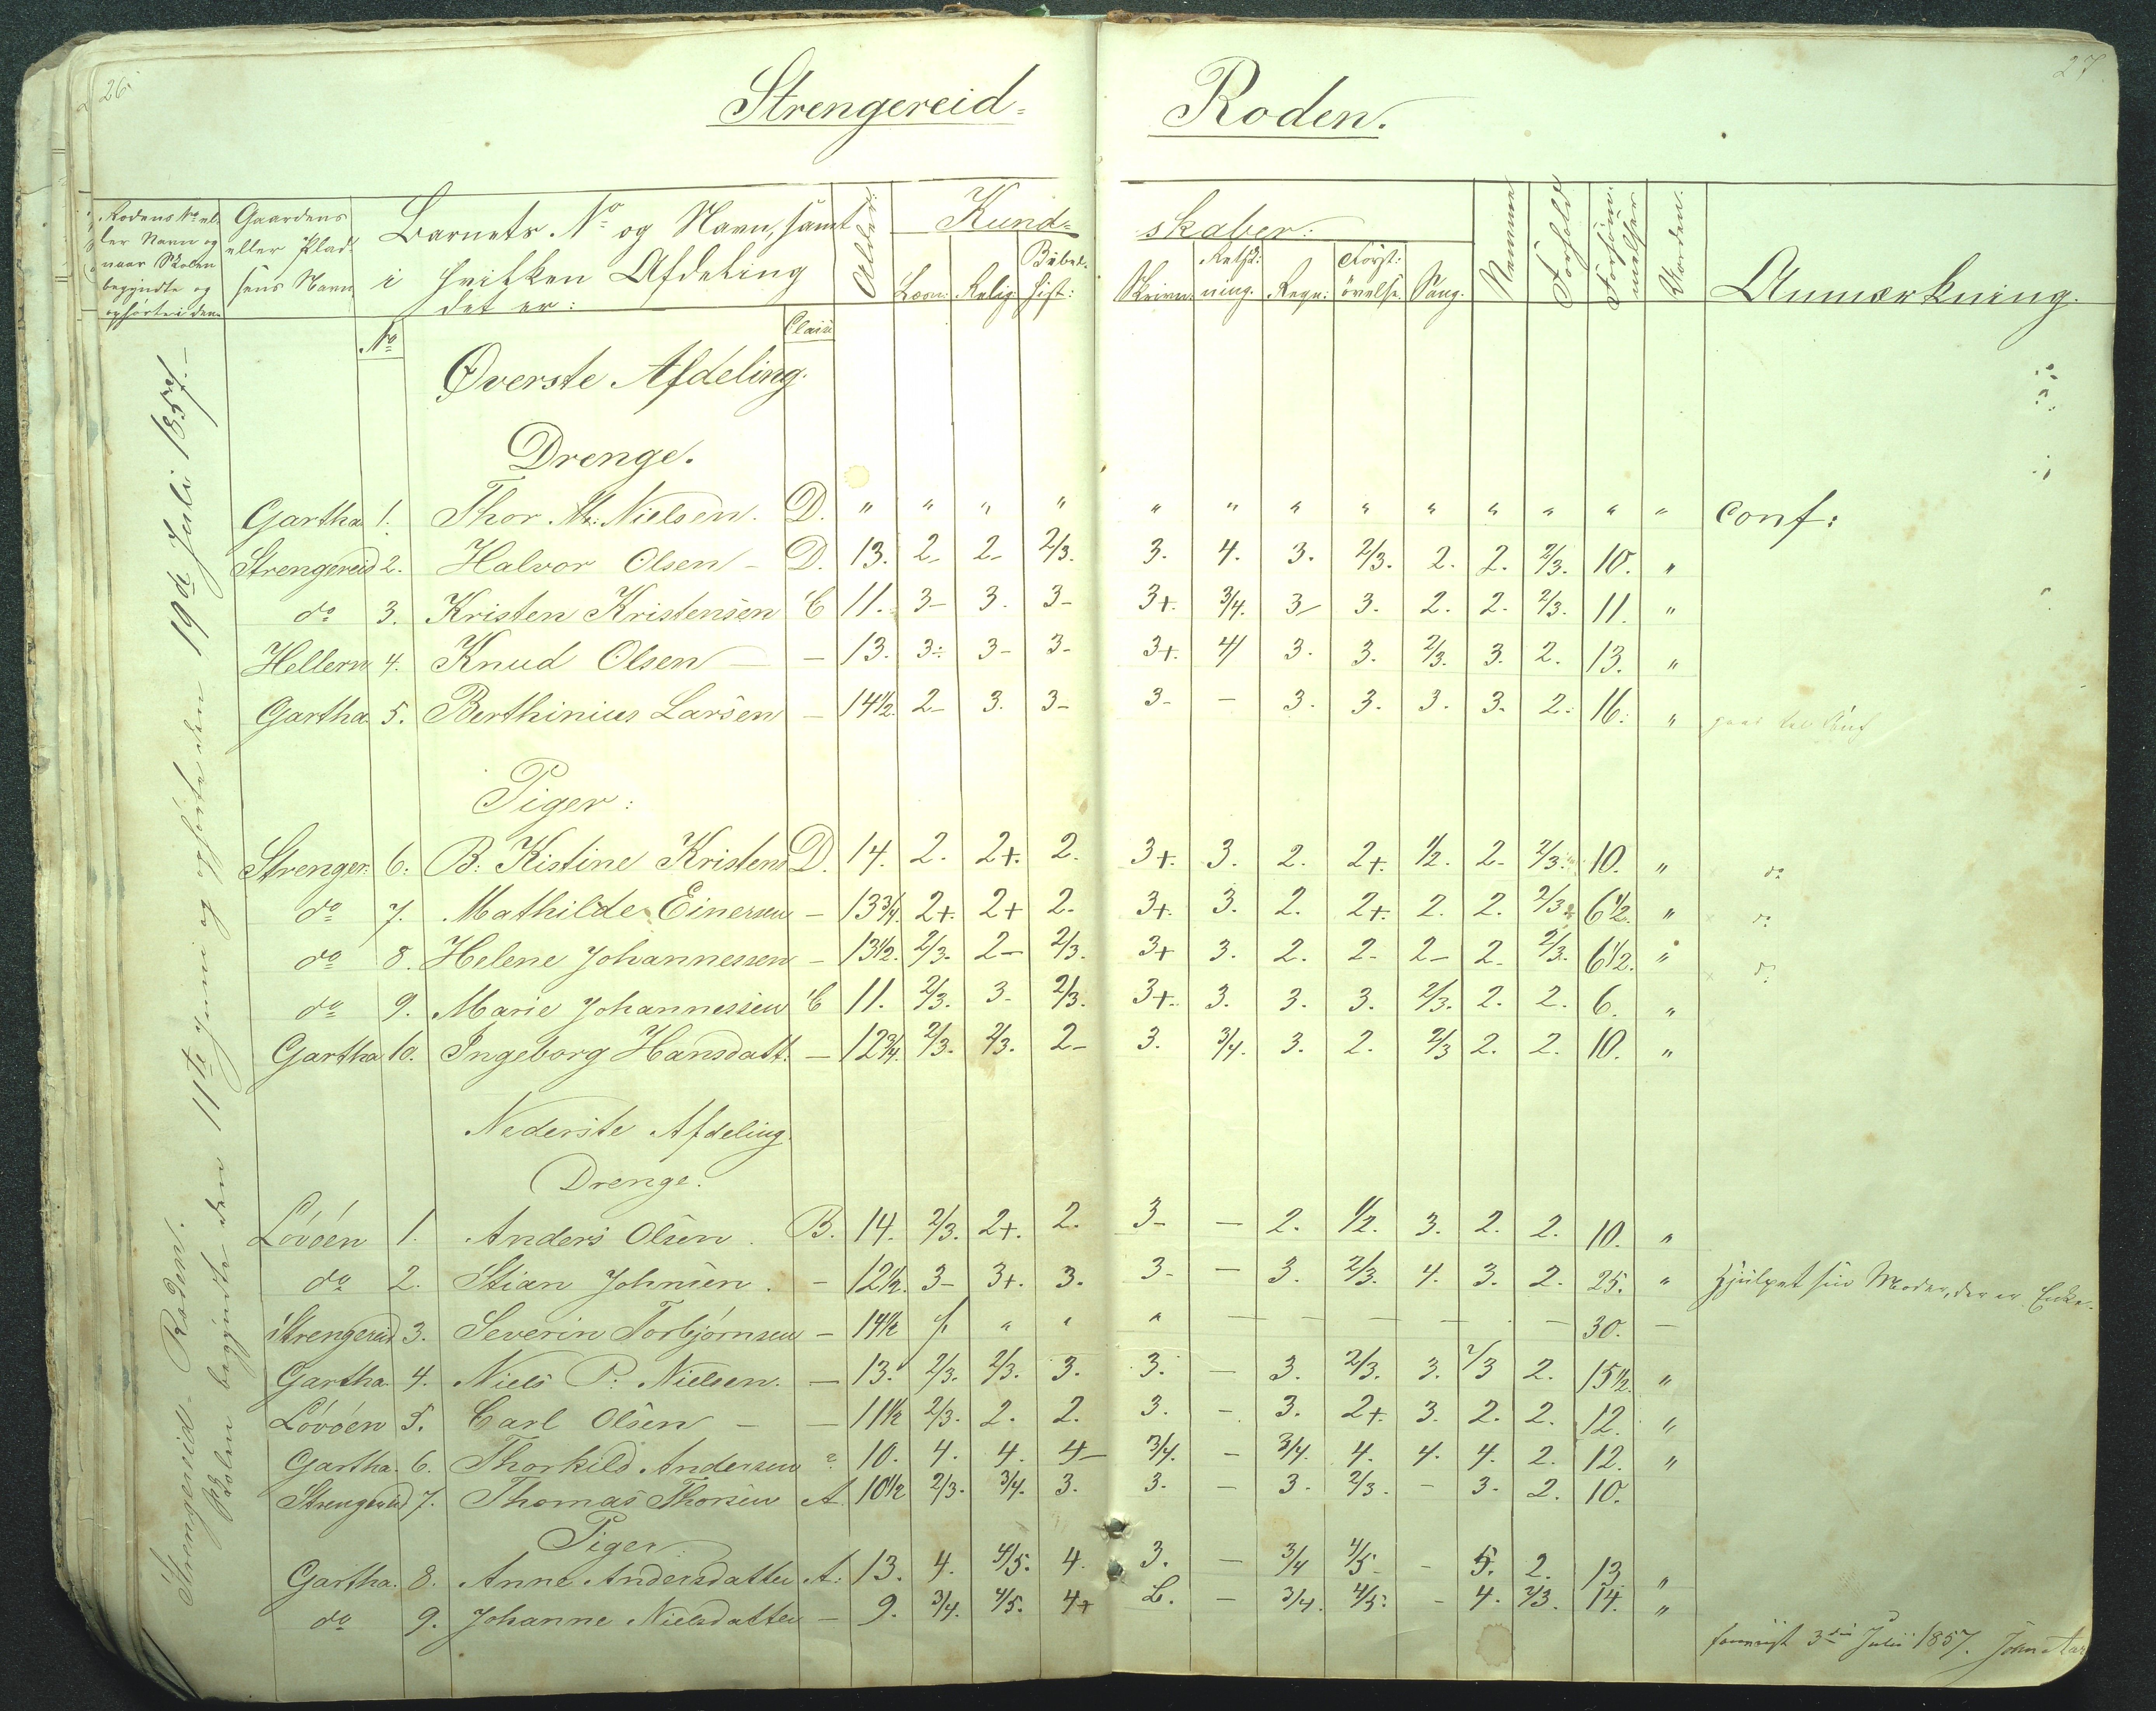 26.
27.
Strengereid- Roden.
Rodens No el- Gaardens Barnets No og Navn, samt Alder. Kund- skaber: Nemme Forhold Forsømmelser Anmærkning.
ler Navn og eller Plad-
naar Skolen sens Navn i hvilken Afdeling
begyndte og
ophørte i den det er:
Læsn: Relig: Bibel. hist: Skrivn: Retskr: ning. Regn: Forst: øvelse. Sang.
No Class
Øverste Afdeling.
Drenge.
Gartha 1. Thor N. Nielsen. D. " " " " " " " " " " " " " conf:
Strengereid 2. Halvor Olsen - D. 13. 2- 2- 2/3. 3. 4. 3. 2/3. 2. 2. 2/3. 10. "
do 3. Kristen Kristensen C 11. 3- 3. 3- 3+. 3/4. 3- 3. 2. 2. 2/3. 11. "
Hellern 4. Knud Olsen - 13. 3- 3- 3- 3+. 4 3. 3. 2/3. 3. 2. 13. "
Gartha 5. Berthinius Larsen - 14 1/2. 2- 3. 3- 3- - 3. 3. 3. 3. 2. 16. "
Piger:
Strenger: 6. B. Kistine Kristens D. 14. 2. 2+. 2. 3+. 3. 2. 2+. 1/2. 2. 2/3. 10. " do
do 7. Mathilde Einersen - 13 3/4. 2+. 2+ 2. 3+. 3. 2. 2+. 2. 2. 2/3. 6 1/2. " do
do 8. Helene Johannessen - 13 1/2. 2/3. 2- 2/3. 3+ 3. 2. 2. 2- 2. 2/3. 6 1/2. " do
do 9. Marie Johannessen C 11. 2/3. 3. 2/3. 3+. 3. 3. 3. 2/3. 2. 2. 6. "
Gartha 10. Ingeborg Hansdatt. - 12 3/4. 2/3. 2/3. 2- 3. 3/4. 3. 2. 2/3 2. 2. 10. "
Nederste Afdeling
Drenge.
Lövöen 1. Anders Olsen. B. 14. 2/3. 2+. 2. 3- - 2. 1/2. 3. 2. 2. 10. "
do 2. Stian Johnsen. - 12 1/2. 3- 3+. 3. 3- - 3. 2/3. 4. 3. 2. 25. " Hjulpet sin Moder, der er Enke.
Strengereid 3. Severin Torbjørnsen - 14 1/2 " " " - - - - - - 30. -
Gartha 4. Niels P. Nielsen. - 13. 2/3. 2/3. 3. 3. - 3. 2/3. 3. 2/3 2. 15 1/2. "
Lövöen 5. Carl Olsen - - 11 1/2 2/3. 2. 2. 3. - 3. 2+. 3. 2. 2. 12. "
Gartha. 6. Thorkild Andersen 10. 4. 4. 4- 3/4. - 3/4. 4. 4. 4. 2. 12. "
Strengereid 7. Thomas Thorsen A. 10 1/2 2/3. 3/4. 3. 3. - 3. 2/3. - 3. 2. 10.
Piger
Gartha. 8. Anne Andersdatter A. 13. 4. 4/5. 4. 3. - 3/4 4/5 - 5. 2. 13 "
do 9. Johanne Nielsdatter - 9. 3/4. 4/5. 4+ - 3/4. 4/5. - 4. 2/3. 14. "
3die Julii 1857. John Aas
Strengereid-Roden.
Skolen begyndte den 11te Juni og ophørte den 19de Juli 1857-